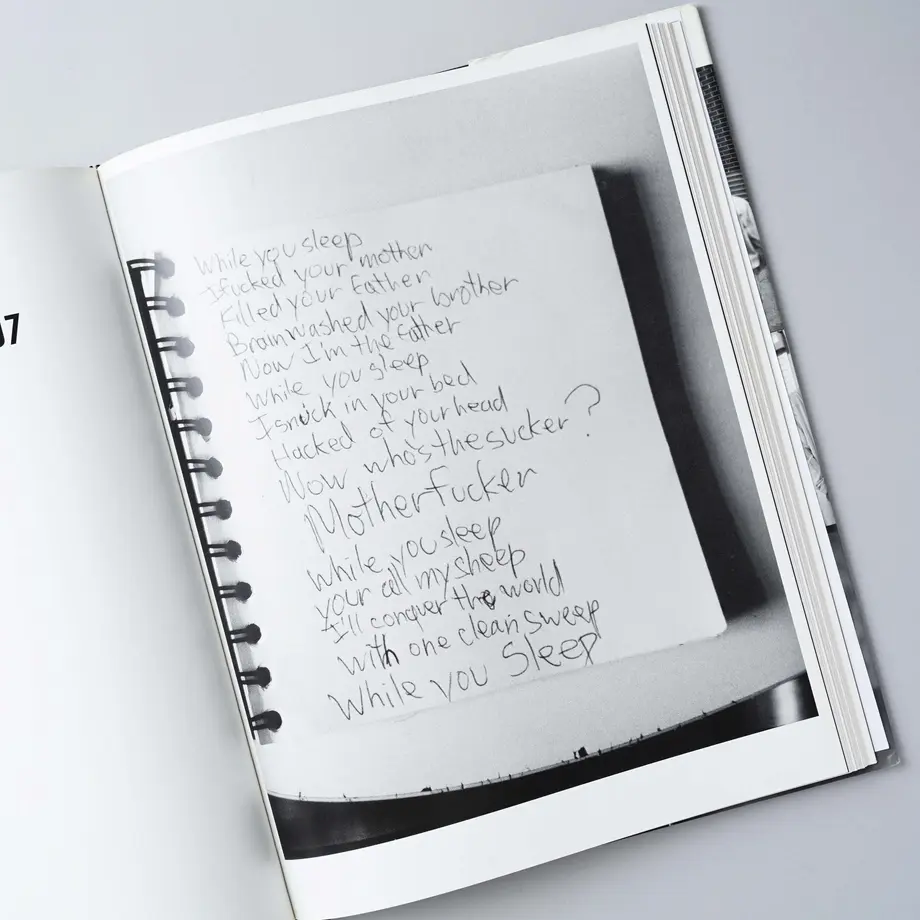 07
While you sleep
I fucked your mother
Killed your Father
Brainwashed your brother
Now I'm the Father
While you sleep
I snuck in your bed
Hacked of your head
Now who's the sucker?
MotherFucker
While you sleep
your all my sheep
I'll conquer the world
with one clean sweep
While you Sleep